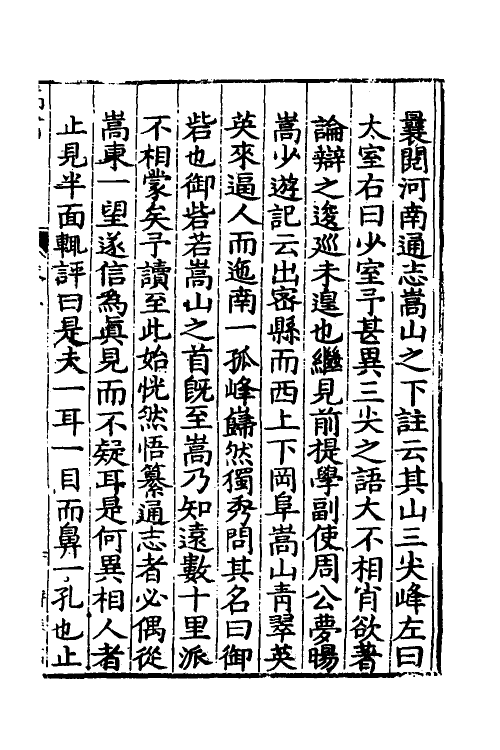 曩閱河南通志嵩山之下註云其山三尖峰左曰
太室右曰少室予甚異三尖之語大不相肖欲著
論辯之逡廵未遑也繼見前提學副使周公夢暘
嵩少遊記云出密縣而西上下岡阜嵩山青翠英
英來逼人而迤南一孤峰巋然獨秀問其名曰御
砦也御砦若嵩山之首旣至嵩乃知遠數十里派
不相蒙矣予讀至此始恍然悟纂通志者必偶從
嵩東一望遂信為眞見而不疑耳是何異相人者
止見半面輒評曰是夫一耳一目而鼻一孔也止